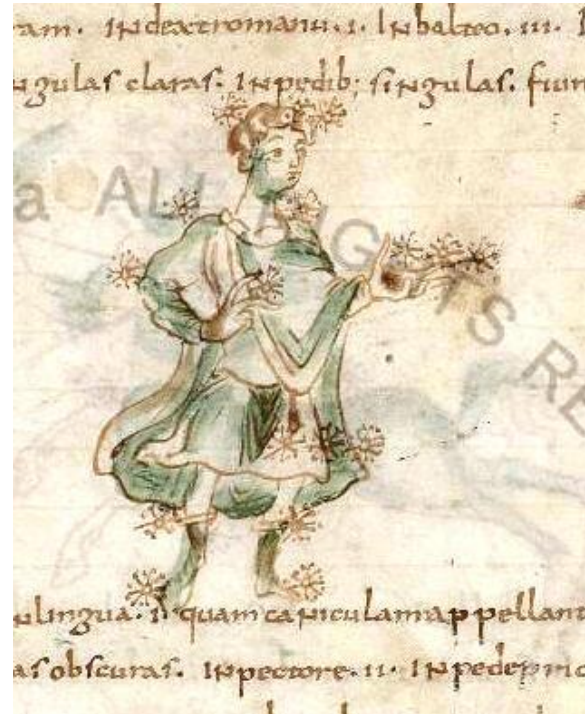 ram. Indextromanu. i. Inbalteo. iii.
ngulas claras. Inpedib; singulas. fiun
a ALL RIGHTS RE
nlingua. i. quam caniculam appellant
as obscuras. Inpectore. ii. Inpedeprio